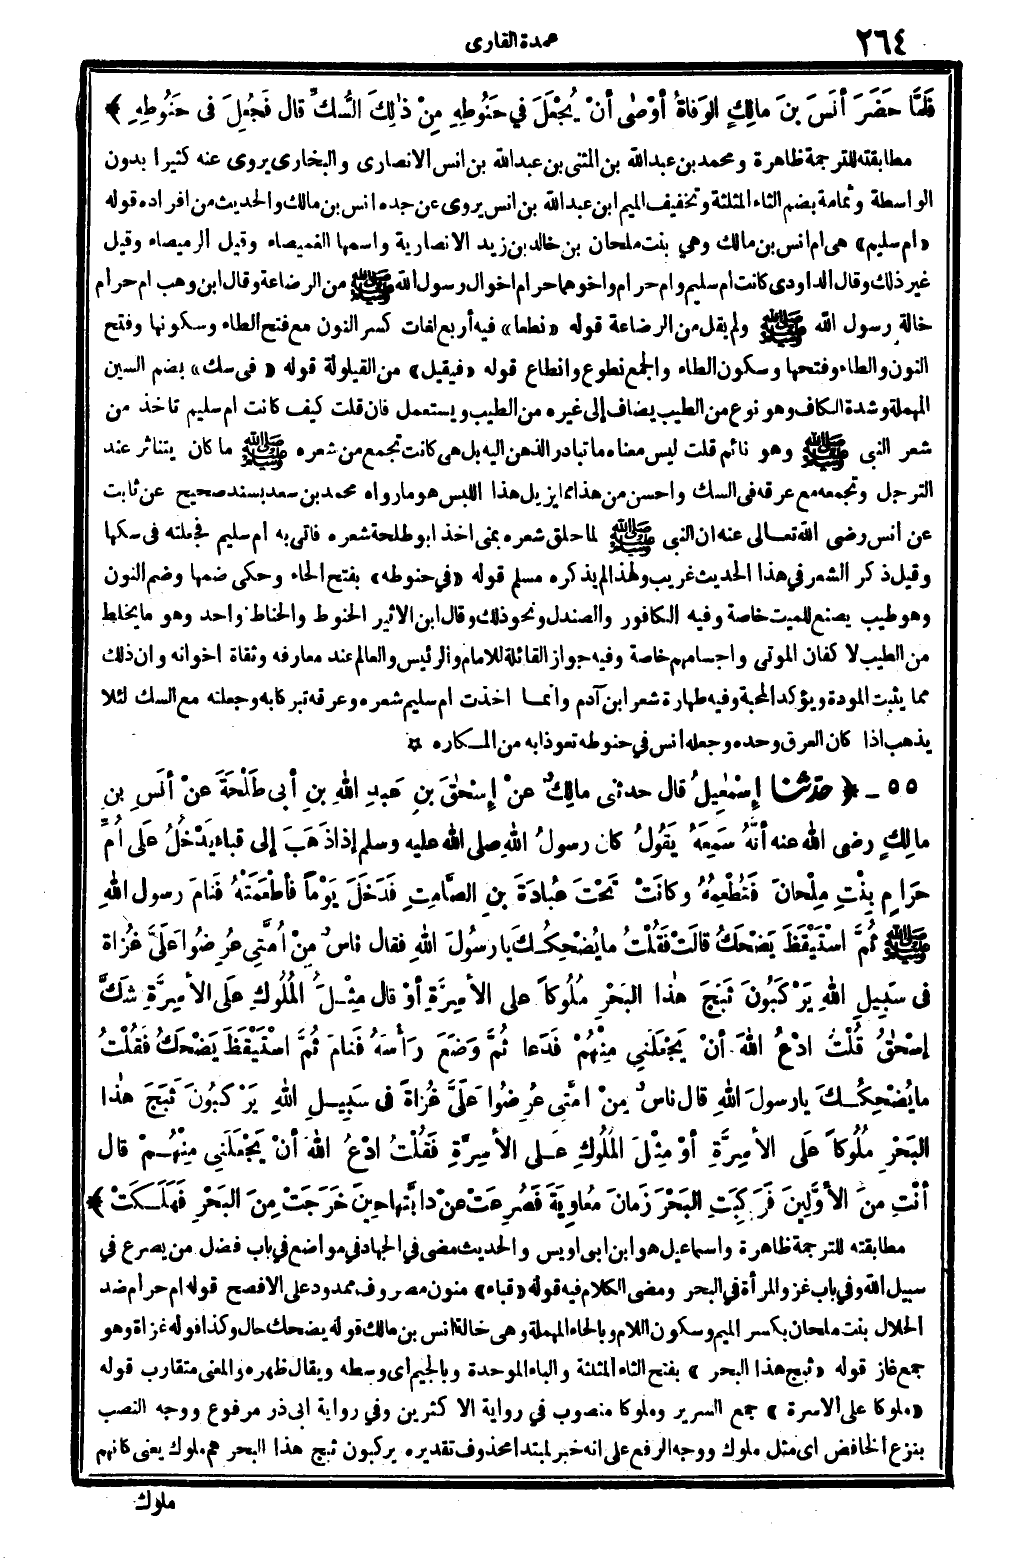 ٢٦٤
عمدة القارى
فَلَمَّا حَضَرَ أنَسَ بنَ مالِكٍ الوَفاةُ أوْصٰى أنْ يُجْعَلَ فِي حَنُوطِهِ مِنْ ذٰلِكَ السُّكِّ قال فَجُعِلَ فى حَنُوطِهِ ﴾
مطابقته للترجمة ظاهرة ومحمد بن عبدالله بن المثنى بن عبدالله بن انس الانصارى والبخارى يروى عنه كثيرا بدون
الواسطة وثمامة بضم الثاء المثلثة وتخفيف الميم ابن عبدالله بن انس يروى عن جده انس بن مالك والحديث من افراده قوله
«ام سليم» هى ام انس بن مالك وهي بنت ملحان بن خالد بن زيد الانصارية واسمها الغميصاء وقيل الرميصاء وقيل
غير ذلك وقال الداودى كانت ام سليم وام حرام واخوهما حرام اخوال رسول الله ﷺ من الرضاعة وقال ابن وهب ام حرام
خالة رسول الله ﷺ ولم يقل من الرضاعة قوله «نطعا» فيه أربع لغات كسر النون مع فتح الطاء وسكونها وفتح
النون والطاء وفتحها وسكون الطاء والجمع نطوع وانطاع قوله «فيقيل» من القيلولة قوله «فى سك» بضم السين
المهملة وشدة الكاف وهو نوع من الطيب يضاف إلى غيره من الطيب ويستعمل فان قلت كيف كانت ام سليم تاخذ من
شعر النبى ﷺ وهو نائم قلت ليس معناه ما تبادر الذهن اليه بل هى كانت تجمع من شعره ﷺ ما كان يتناثر عند
الترجل وتجمعه مع عرقه فى السك واحسن من هذا مما يزيل هذا اللبس هو مارواه محمد بن سعد بسند صحيح عن ثابت
عن أنس رضى الله تعالى عنه ان النبى ﷺ لما حلق شعره بمنى اخذ ابو طلحة شعره فاتى به ام سليم فجعلته فى سكها
وقيل ذكر الشعر في هذا الحديث غريب ولهذا لم يذكره مسلم قوله «في حنوطه» بفتح الحاء وحكى ضمها وضم النون
وهو طيب يصنع للميت خاصة وفيه الكافور والصندل ونحو ذلك وقال ابن الاثير الحنوط والحناط واحد وهو ما يخلط
من الطيب لا كفان الموتى واجسامهم خاصة وفيه جواز القائلة للامام والرئيس والعالم عند معارفه وثقاة اخوانه وان ذلك
مما يثبت المودة ويؤكد المحبة وفيه طهارة شعر ابن آدم وانما اخذت ام سليم شعره وعرقه تبركا به وجعلته مع السك لئلا
يذهب اذا كان العرق وحده وجعله انس في حنوطه تعوذا به من المكاره ✡
٥٥ ـ ﴿ حدّثنا إسْمٰعِيلُ قال حدثنى مالِكٌ عنْ إسْحٰقَ بنِ عَبدِ اللهِ بنِ أبى طَلْحَةَ عنْ أنَسِ بنِ
مالِكٍ رضى الله عنه أنَّهُ سَمِعَهُ يَقُولُ كان رسولُ اللهِ صلى الله عليه وسلم إذا ذَهَبَ إلى قباء يَدْخُلُ عَلَى أُمِّ
حَرَامٍ بِنْتِ مِلْحانَ فَتُطْعِمُهُ وكانَتْ تَحْتَ عُبادَةَ بنِ الصَّامِتِ فَدَخَلَ يَوْماً فأطْعَمَتْهُ فَنامَ رسول اللهِ
ﷺ ثُمَّ اسْتَيْقَظَ يَضْحَكُ قالَتْ فَقُلْتُ ما يُضْحِكُكَ يا رسُولَ اللهِ فقال ناسٌ مِنْ أُمَّتِى عُرِضُوا عَلَيَّ غُزاةً
فى سَبِيلِ اللهِ يَرْكَبُونَ ثَبَجَ هٰذا البَحْرِ مُلُوكاً على الأسِرَّةِ أوْ قال مِثْلَ المُلُوكِ عَلَى الأسِرَّةِ شَكَّ
إسْحٰقُ قُلْتُ ادْعُ اللهَ أنْ يَجْعَلَنِي مِنْهُمْ فَدَعا ثُمَّ وَضَعَ رَأسَهُ فَنامَ ثُمَّ اسْتَيْقَظَ يَضْحَكُ فَقُلْتُ
ما يُضْحِكُكَ يا رسولَ اللهِ قال ناسٌ مِنْ امَّتِى عُرِضُوا عَلَيَّ غُزاةً فى سَبِيلِ اللهِ يَرْكَبُونَ ثَبَجَ هٰذا
البَحْرِ مُلُوكاً عَلَى الأسِرَّةِ أوْ مِثْلَ المُلُوكِ عَلى الأسِرَّةِ فَقُلْتُ ادْعُ اللهَ أنْ يَجْعَلَنِي مِنْهُمْ قال
أنْتِ مِنَ الأوَّلِينَ فَرَكِبَتِ البَحْرَ زَمانَ مُعاوِيَةَ فَصُرِعَتْ عنْ دابَّتِها حِينَ خَرَجَتْ مِنَ البَحْرِ فَهَلَكَتْ ﴾
مطابقته للترجمة ظاهرة واسماعيل هو ابن ابى اويس والحديث مضى في الجهاد في مواضع في باب فضل من يصرع في
سبيل الله وفي باب غزو المرأة في البحر ومضى الكلام فيه قوله «قباء» منون مصروف ممدود على الافصح قوله ام حرام ضد
الحلال بنت ملحان بكسر الميم وسكون اللام وبالحاء المهملة وهى خالة انس بن مالك قوله يضحك حال وكذا قوله غزاة وهو
جمع غاز قوله «ثبج هذا البحر» بفتح الثاء المثلثة والباء الموحدة وبالجيم أى وسطه ويقال ظهره والمعنى متقارب قوله
«ملوكا على الأسرة» جمع السرير وملوكا منصوب في رواية الاكثرين وفي رواية ابى ذر مرفوع ووجه النصب
بنزع الخافض اى مثل ملوك ووجه الرفع على انه خبر لمبتدا محذوف تقديره يركبون ثبج هذا البحر هم ملوك يعنى كانهم
ملوك